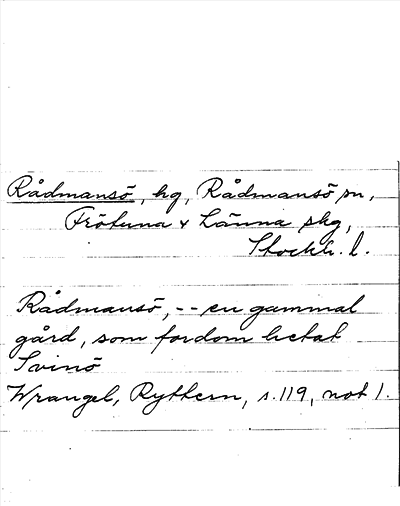 Rådmansö, hg, Rådmansö sn,
Frötuna & Länna skg,
Stockh. l.
Rådmansö, -- en gammal
gård, som fordom hetat
Svinö
Wrangel, Ryttern, s. 119, not 1.